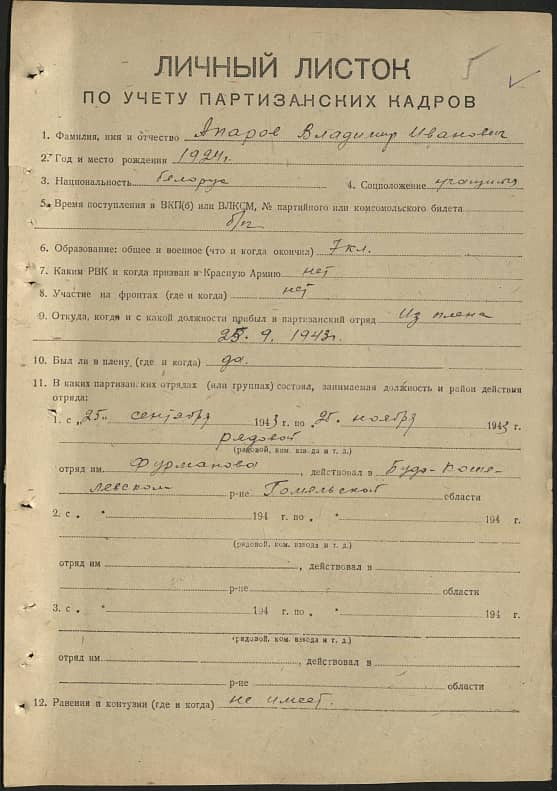 5
ЛИЧНЫЙ ЛИСТОК
ПО УЧЕТУ ПАРТИЗАНСКИХ КАДРОВ
1. Фамилия, имя и отчество Апаров Владимир Иванович
2. Год и место рождения 1924г.
3. Национальность белорус 4. Соцположение учащийся
5. Время поступления в ВКП(б) или ВЛКСМ, № партийного или комсомольского билета
б/п
6. Образование: общее и военное (что и когда окончил) 7 кл.
7. Каким РВК и когда призван в Красную Армию нет
8. Участие на фронтах (где и когда) нет
9. Откуда, когда и с какой должности прибыл в партизанский отряд Из плена
25. 9. 1943г.
10. Был ли в плену (где и когда) да.
11. В каких партизанских отрядах (или группах) состоял, занимаемая должность и район действия
отряда:
1. с „25" сентября 1943 г. по „25" ноября 1943 г.
рядовой
(рядовой, ком. взвода и т. д.)
отряд им. Фурманова, действовал в Буда-Коше-
левском р-не Гомельской области
2. с „ " 194 г. по „ " 194 г.
(рядовой, ком. взвода и т. д.)
отряд им , действовал в
р-не области
3. с „ " 194 г. по „ " 194 г.
(рядовой, ком. взвода и т. д.)
отряд им , действовал в
р-не области
12. Ранения и контузии (где и когда) не имеет.